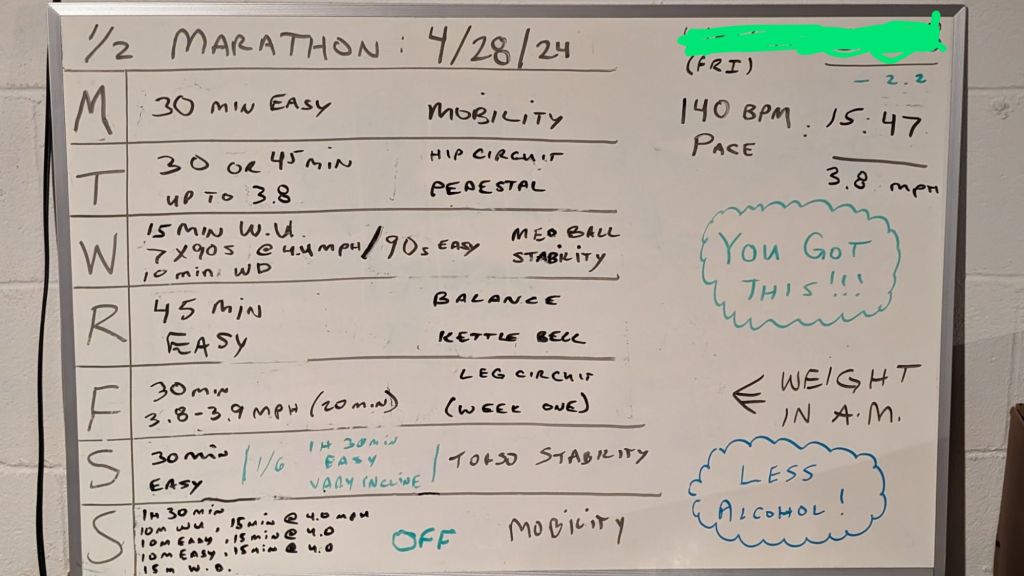 1/2 MARATHON: 4/28/24
M
30 MIN EASY
MOBILITY
T
30 OR 45 MIN
UP TO 3.8
HIP CIRCUIT
PEDESTAL
W
15 MIN W.U.
7 X 90S @ 4.4 MPH / 90s EASY
10 min WD
MED BALL
STABILITY
R
45 MIN
EASY
BALANCE
KETTLE BELL
F
30 MIN
3.8-3.9 MPH (20 MIN)
LEG CIRCUIT
(WEEK ONE)
S
30 MIN
EASY
1/6
1H 30 MIN
EASY
VARY INCLINE
TORSO STABILITY
S
1H 30 MIN
10M WU, 15 MIN @ 4.0 MPH
10M EASY, 15 MIN @ 4.0
10M EASY, 15 MIN @ 4.0
15M W.D.
OFF
MOBILITY
(FRI)
- 2.2
140 BPM : 15:47
PACE
3.8 MPH
YOU GOT
THIS!!!
WEIGHT
IN A.M.
LESS
ALCOHOL!